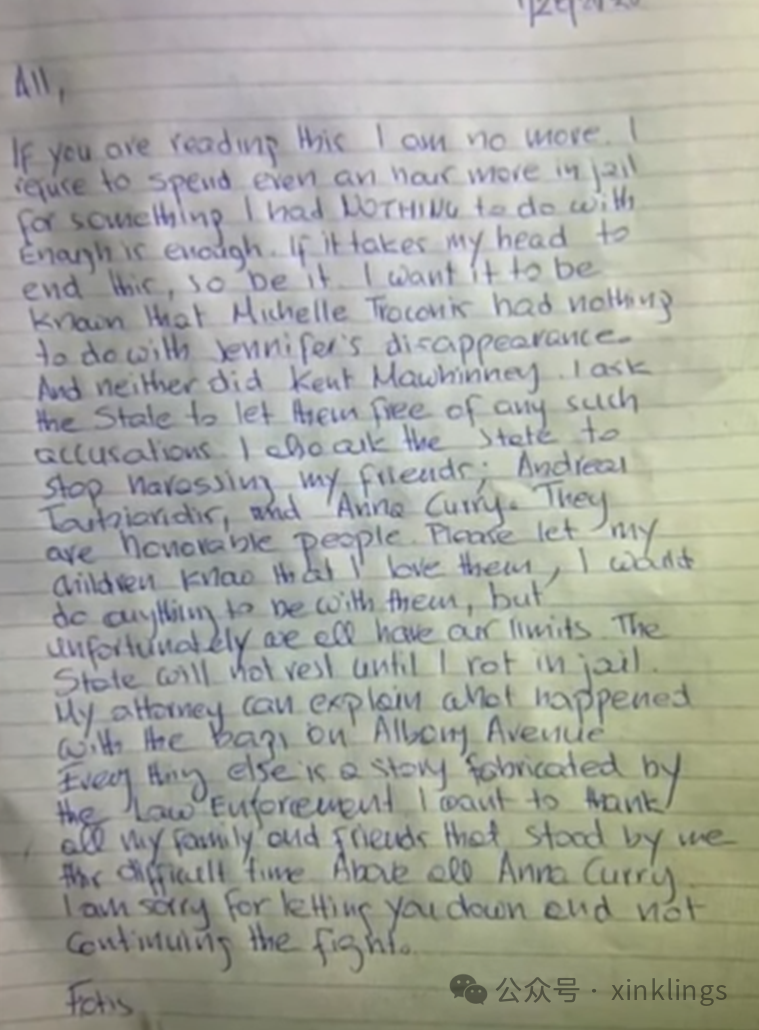 All,
If you are reading this I am no more. I
refuse to spend even an hour more in jail
for something I had NOTHING to do with
Enough is enough. If it takes my head to
end this, so be it. I want it to be
known that Michelle Troconis had nothing
to do with Jennifer's disappearance.
And neither did Kent Mawhinney. I ask
the State to let them free of any such
accusations. I also ask the State to
stop harassing my friends; Andreas
Toutziaridis, and Anna Curry. They
are honorable people. Please let my
children know that I love them, I would
do anything to be with them, but
unfortunately we all have our limits. The
State will not rest until I rot in jail.
My attorney can explain what happened
with the bags on Albany Avenue
Every thing else is a story fabricated by
the Law Enforcement I want to thank
all my family and friends that stood by me
this difficult time Above all Anna Curry.
I am sorry for letting you down and not
continuing the fight.
Fotis
公众号 · xinklings